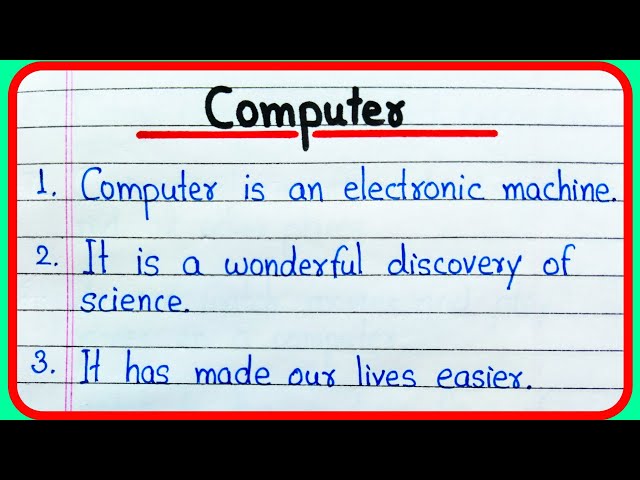 Computer
1. Computer is an electronic machine.
2. It is a wonderful discovery of
science.
3. It has made our lives easier.